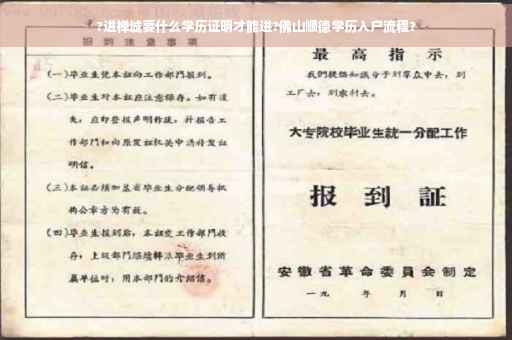 ?进禅城要什么学历证明才能进?佛山顺德学历入户流程?
报到注意事项
(一)毕业生凭本证向工作部门报到。
(二)毕业生对本证应注意保存。如有遗
失,应即登报声明作废,并报告工
作部门和向原发证机关申请补发证
明信。
(三)本证必须加盖省毕业生分配领导机
构公章方为有效。
(四)毕业生报到后,本证交工作部门收
存;上级部门继续转派毕业生到所
属单位时,用本部门的介绍信。
最高指示
我们提倡知识分子到群众中去,到
工厂去,到农村去。
大专院校毕业生统一分配工作
报到证
安徽省革命委员会制定
一九 年 月 日